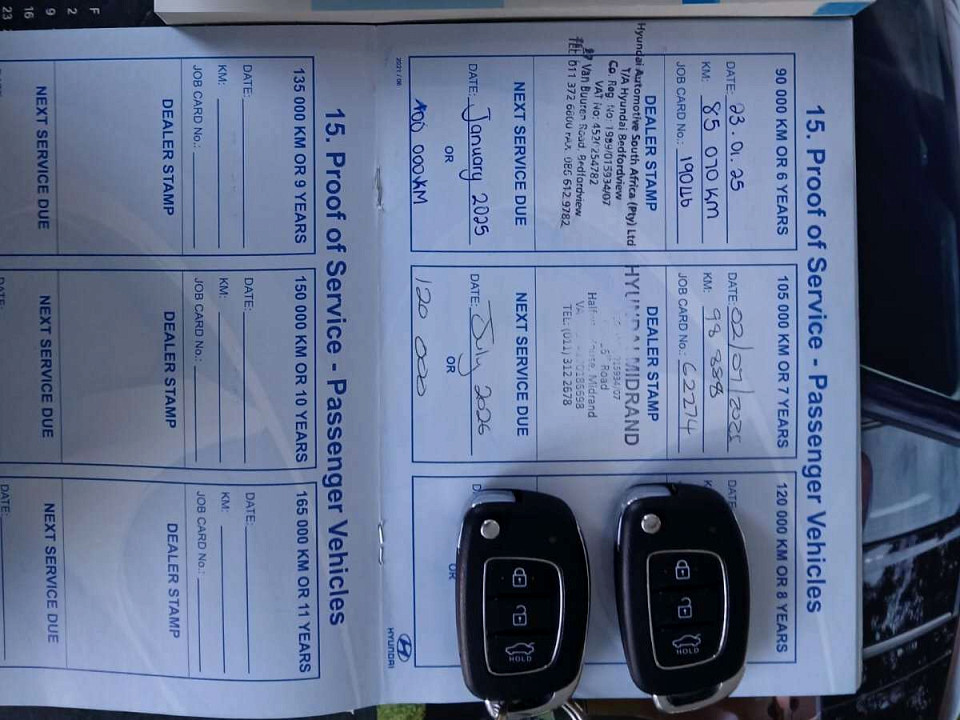 15. Proof of Service - Passenger Vehicles
90 000 KM OR 6 YEARS
DATE: 23.01.25
KM: 85 070 KM
JOB CARD No.: 19046
DEALER STAMP
Hyundai Automotive South Africa (Pty) Ltd
T/A Hyundai Bedfordview
Co. Reg No: 1989/015934/07
VAT No: 4520254782
Van Buuren Road, Bedfordview
TEL 011 372 6600 FAX 086 612 9782
NEXT SERVICE DUE
DATE: January 2025
OR
100 000KM
2021 / 06
105 000 KM OR 7 YEARS
DATE: 02/07/2025
KM: 98 888
JOB CARD No.: 62274
DEALER STAMP
HYUNDAI MIDRAND
15934/07
Road
Midrand
TEL: (011) 312 2678
NEXT SERVICE DUE
DATE: July 2026
OR
120 000
120 000 KM OR 8 YEARS
OR
HYUNDAI
HOLD
HOLD
15. Proof of Service - Passenger Vehicles
135 000 KM OR 9 YEARS
DATE:
KM:
JOB CARD No.:
DEALER STAMP
NEXT SERVICE DUE
150 000 KM OR 10 YEARS
DATE:
KM:
JOB CARD No.:
DEALER STAMP
NEXT SERVICE DUE
DATE:
165 000 KM OR 11 YEARS
DATE:
KM:
JOB CARD No.:
DEALER STAMP
NEXT SERVICE DUE
DATE:
F
2
9
16
23